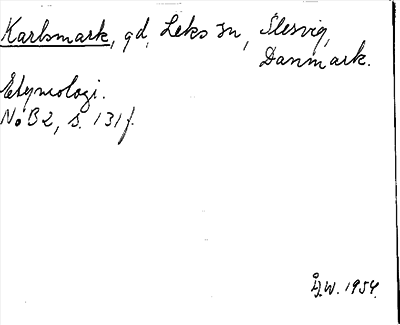 Karlsmark, gd, Leks sn, Slesvig,
Danmark.
Etymologi.
NoB2, s. 131f.
Å.W. 1954.